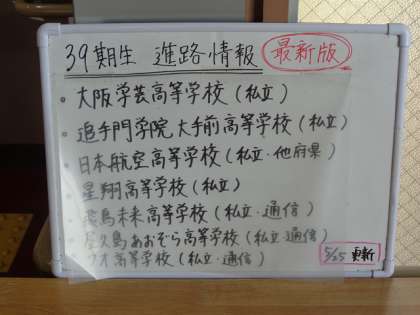 39期生 進路情報 最新版
・大阪学芸高等学校(私立)
・追手門学院大手前高等学校(私立)
・日本航空高等学校(私立・他府県)
・星翔高等学校(私立)
・飛鳥未来高等学校(私立・通信)
・屋久島おおぞら高等学校(私立・通信)
高等学校(私立・通信)
5/25 更新